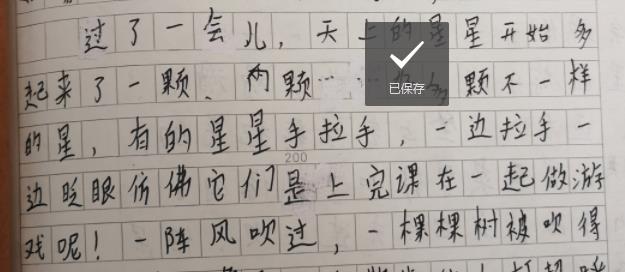 过了一会儿，天上的星星开始多
起来了一颗、两颗……多颗不一样
的星，有的星星手拉手，一边拉手一
200
边眨眼仿佛它们是上完课在一起做游
戏呢！一阵风吹过，一棵棵树被吹得
已保存